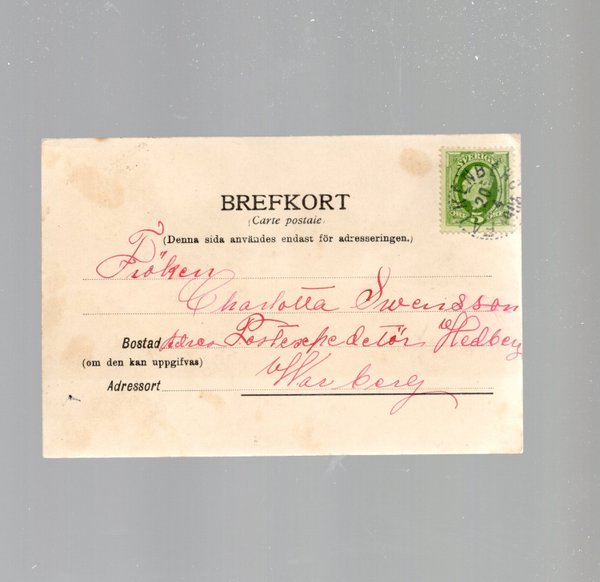 SVERIGE
BREFKORT
(Carte postale)
(Denna sida användes endast för adresseringen.)
Fröken
Charlotta Swensson
Bostad Adres Postexpeditör Hedberg
(om den kan uppgifvas)
Adressort Warberg